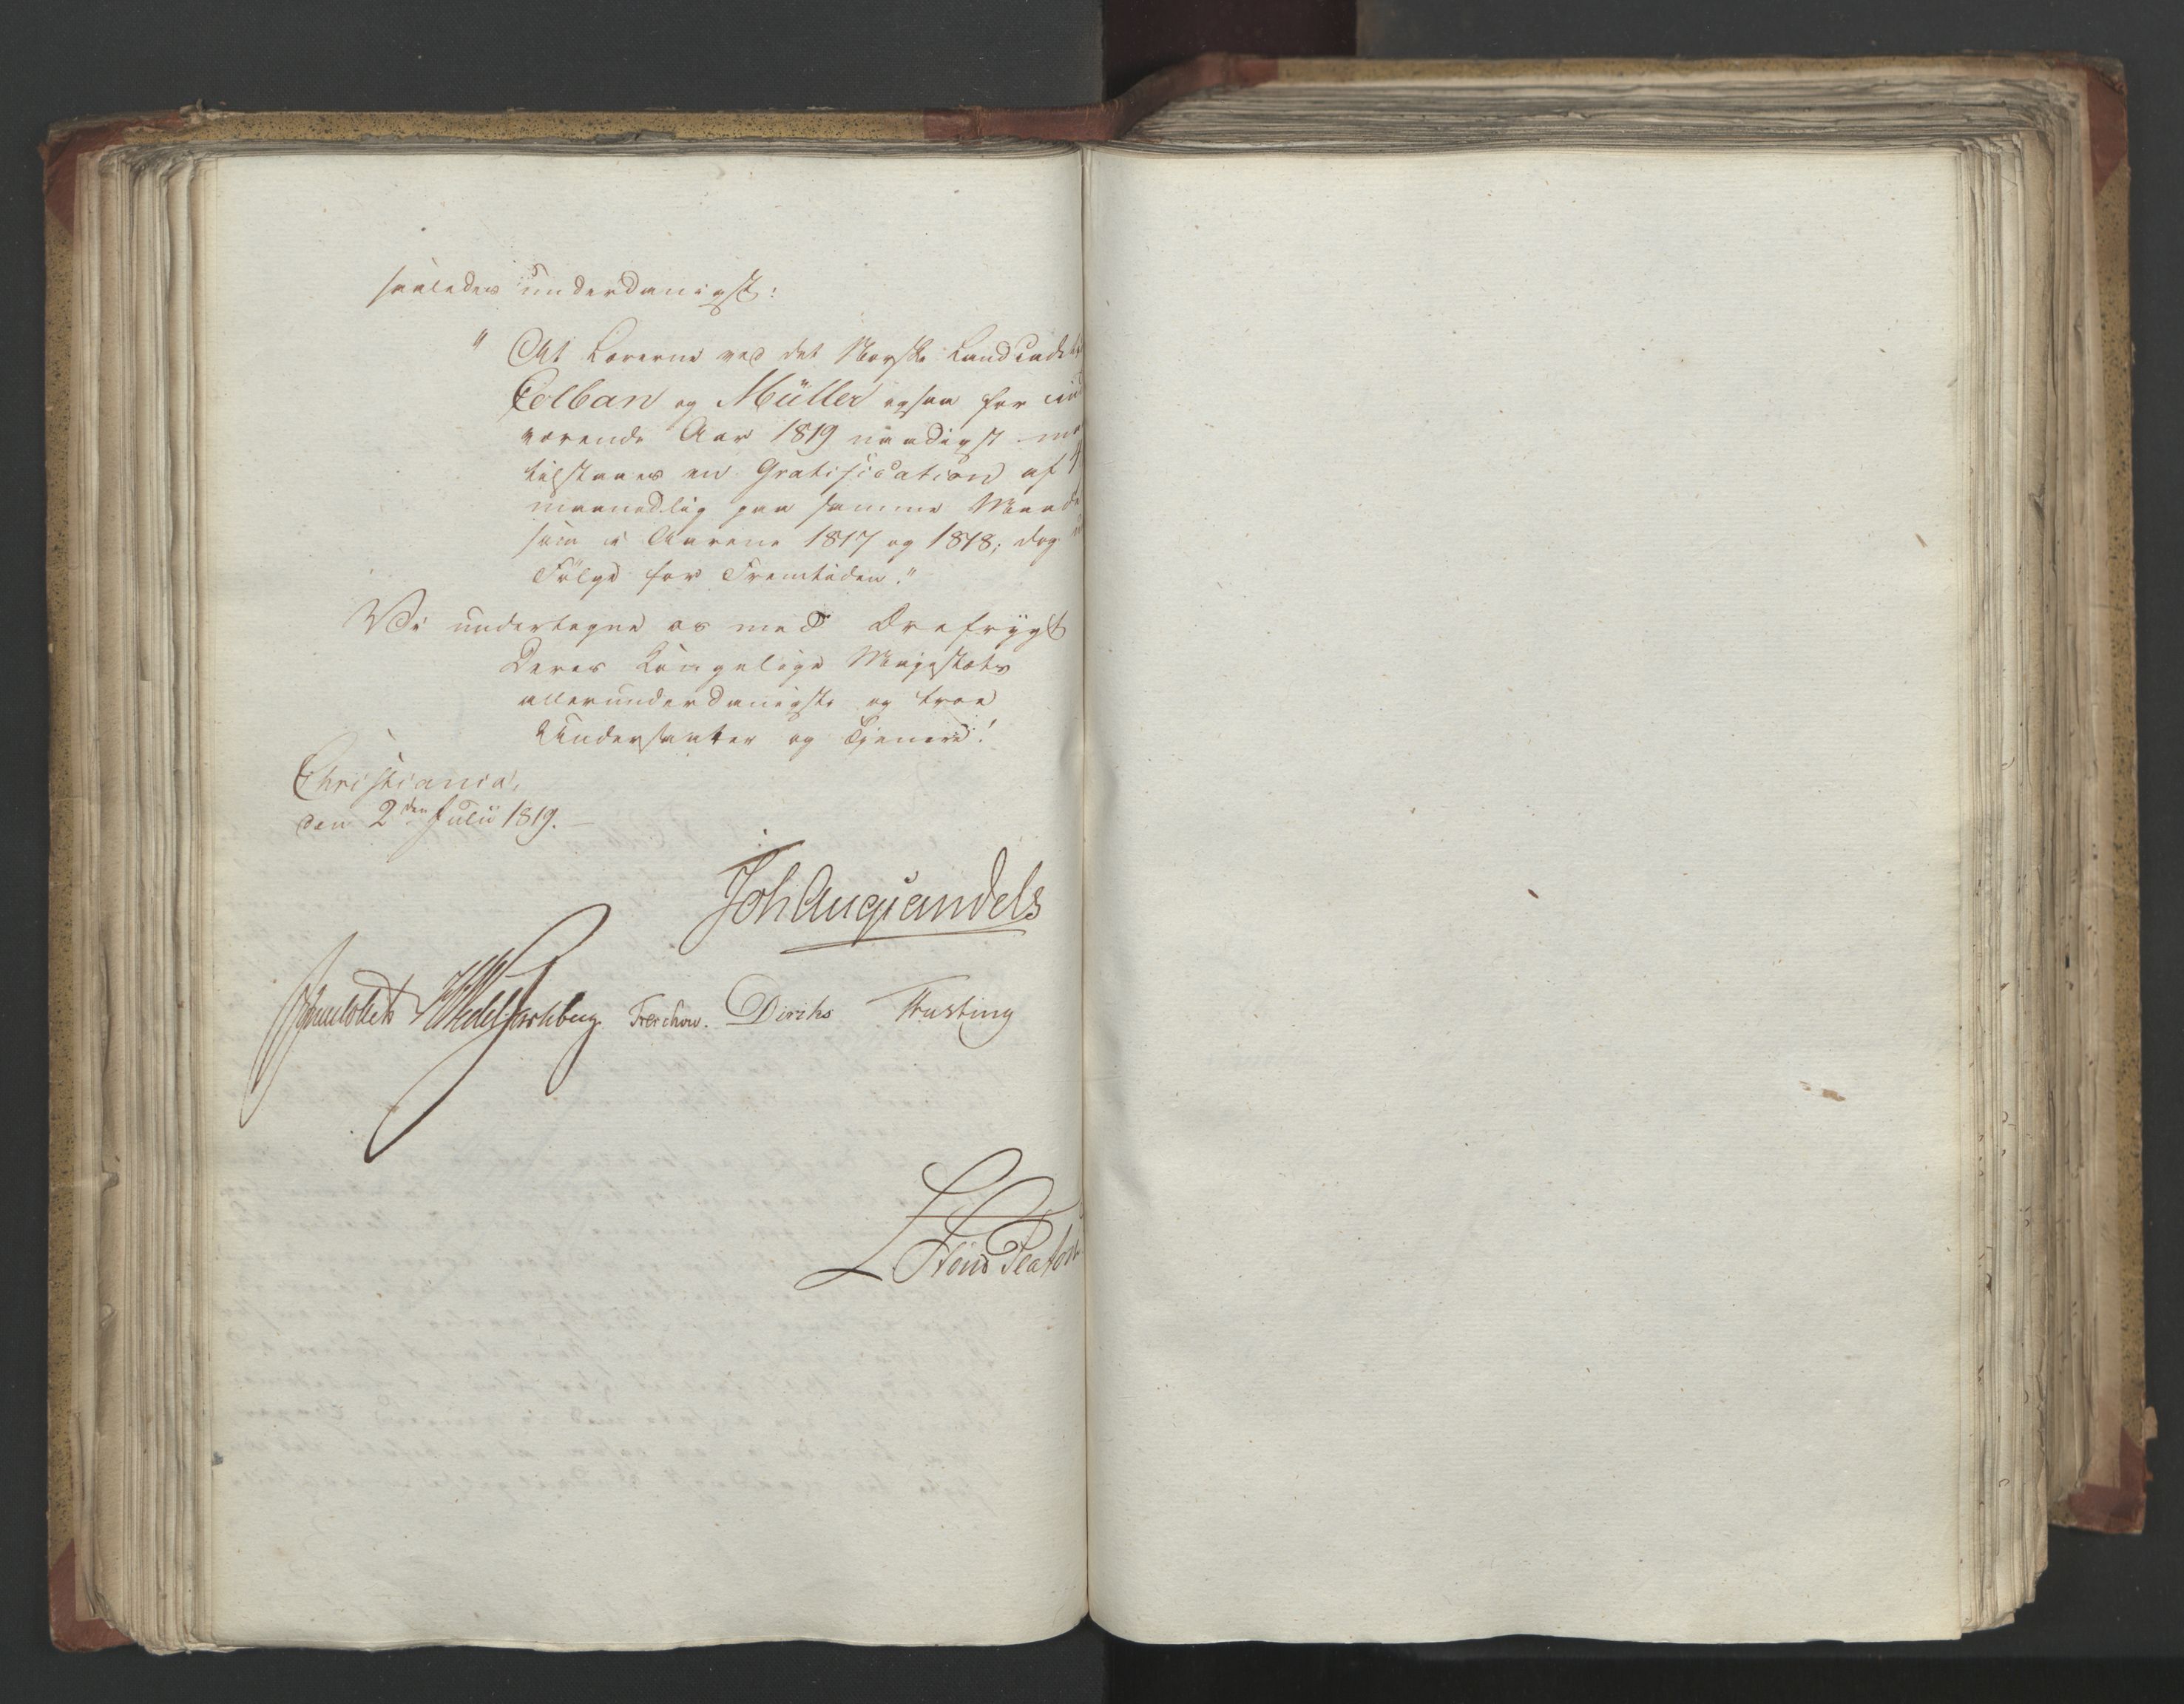 saaledes underdanigst:
" At Lærerne ved det Norske Landcadet
Colban og Müller ogsaa for ind
værende Aar 1819 naadigst maa
tilstaaes en Gratification af
maanedlig paa samme Maade
som i Aarene 1817 og 1818; dog
Følge for Fremtiden."
Vi undertegne os med Ærefrygt
Deres Kongelige Majestæts
allerunderdanigste og troe
Undersaatter og Tjenere!
Christiania,
den 2den Julii 1819. —
Joh Aug Sandels
Sommerhielm HWedel Jarlsberg. Treschow. Diriks Fasting
L. Stoud Platou